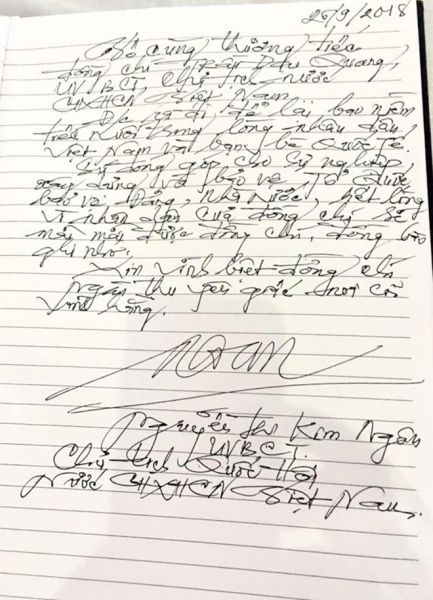 26/9/2018
Vô cùng thương tiếc
đồng chí Trần Đại Quang,
UVBCT, Chủ tịch nước
CHXHCN Việt Nam
Đ/c ra đi, để lại bao niềm
tiếc nuối trong lòng nhân dân
Việt Nam và bạn bè Quốc tế.
Sự đóng góp cho sự nghiệp
xây dựng và bảo vệ Tổ Quốc
bảo vệ Đảng, Nhà nước, hết lòng
vì nhân dân của đồng chí sẽ
mãi mãi được đồng chí, đồng bào
ghi nhớ.
Xin vĩnh biệt đồng chí
ngàn thu yên giấc nơi cõi
vĩnh hằng.
Ngan
Nguyễn Thị Kim Ngân
UVBCT
Chủ tịch Quốc Hội
Nước CHXHCN Việt Nam.